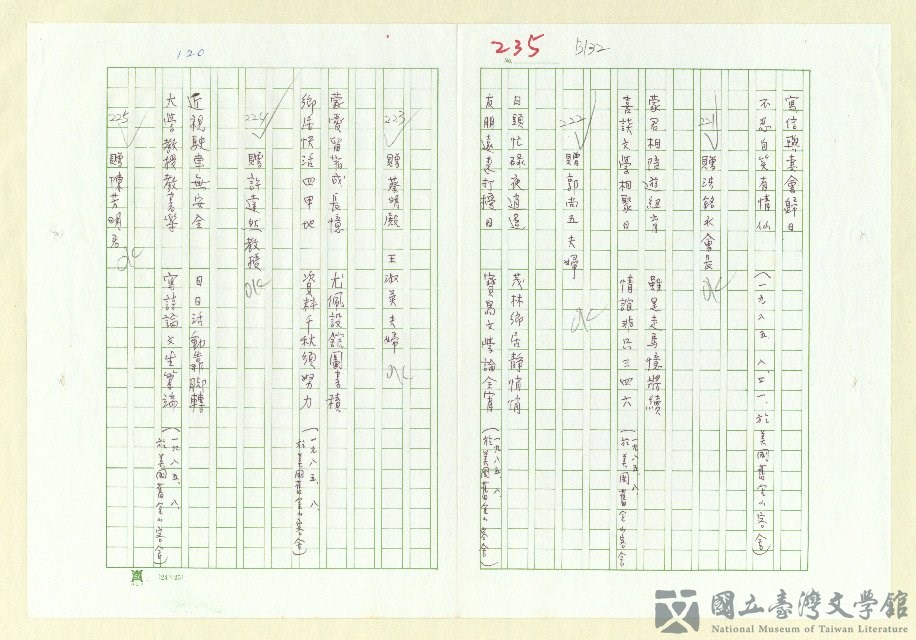 120
235
5132
No.
寫信與畫會歸日
不忍自笑有情仙 (一九八五、八、二一、於美國舊金山客舍)
221 贈洪銘水會長 OK
蒙君相陪遊紐岸 雖是走馬憶將續
喜談文學相聚日 情誼非只三四六 (一九八五、八、於美國舊金山客舍
222 贈郭尚五夫婦 OK
日頭忙碌夜逍遙 茂林鄉居靜悄悄
友朋遠來打擾日 賓島文學論全宵 (一九八五、八、於美國舊金山客舍)
223 贈蔡明殿 王淑英夫婦 OK
蒙受留宿成長憶 尤佩設館圖書積
鄉居快活四甲地 資料千秋須努力 (一九八五、八、於美國舊金山客舍)
224 贈許達然教授 OK
近視駛車無安全 日日活動靠脚轉
大學教授教書學 寫詩論文生筆端 (一九八五、八、於美國舊金山客舍)
225 贈陳芳明君 OK
(24×25)
國立臺灣文學館
National Museum of Taiwan Literature